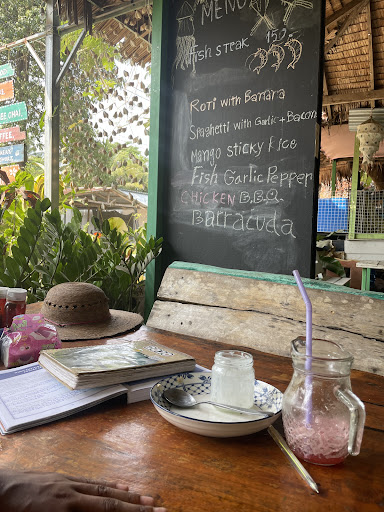 MENU
Fish steak 150.-
Roti with Banana
Spaghetti with Garlic + Bacon
Mango sticky Rice
Fish Garlic Pepper
CHICKEN B.B.Q.
Barracuda